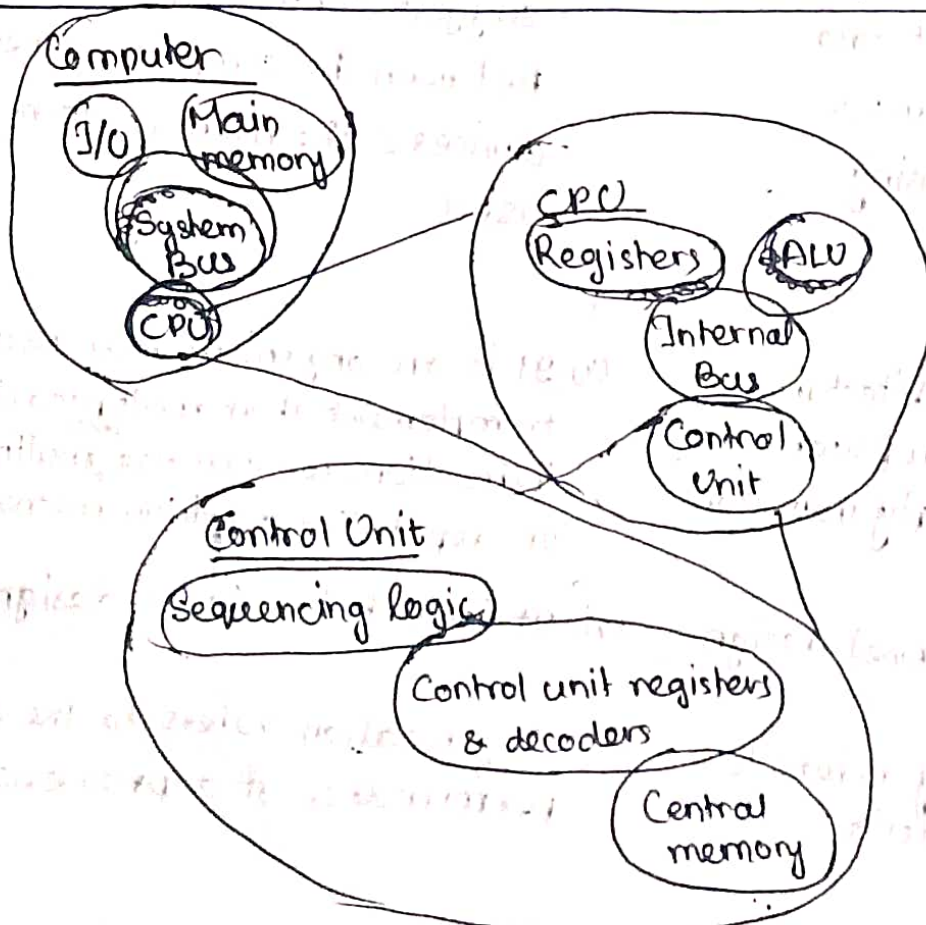 Computer
I/O
Main
memory
System
Bus
CPU
CPU
Registers
ALU
Internal
Bus
Control
Unit
Control Unit
Sequencing logic
Control unit registers
& decoders
Central
memory